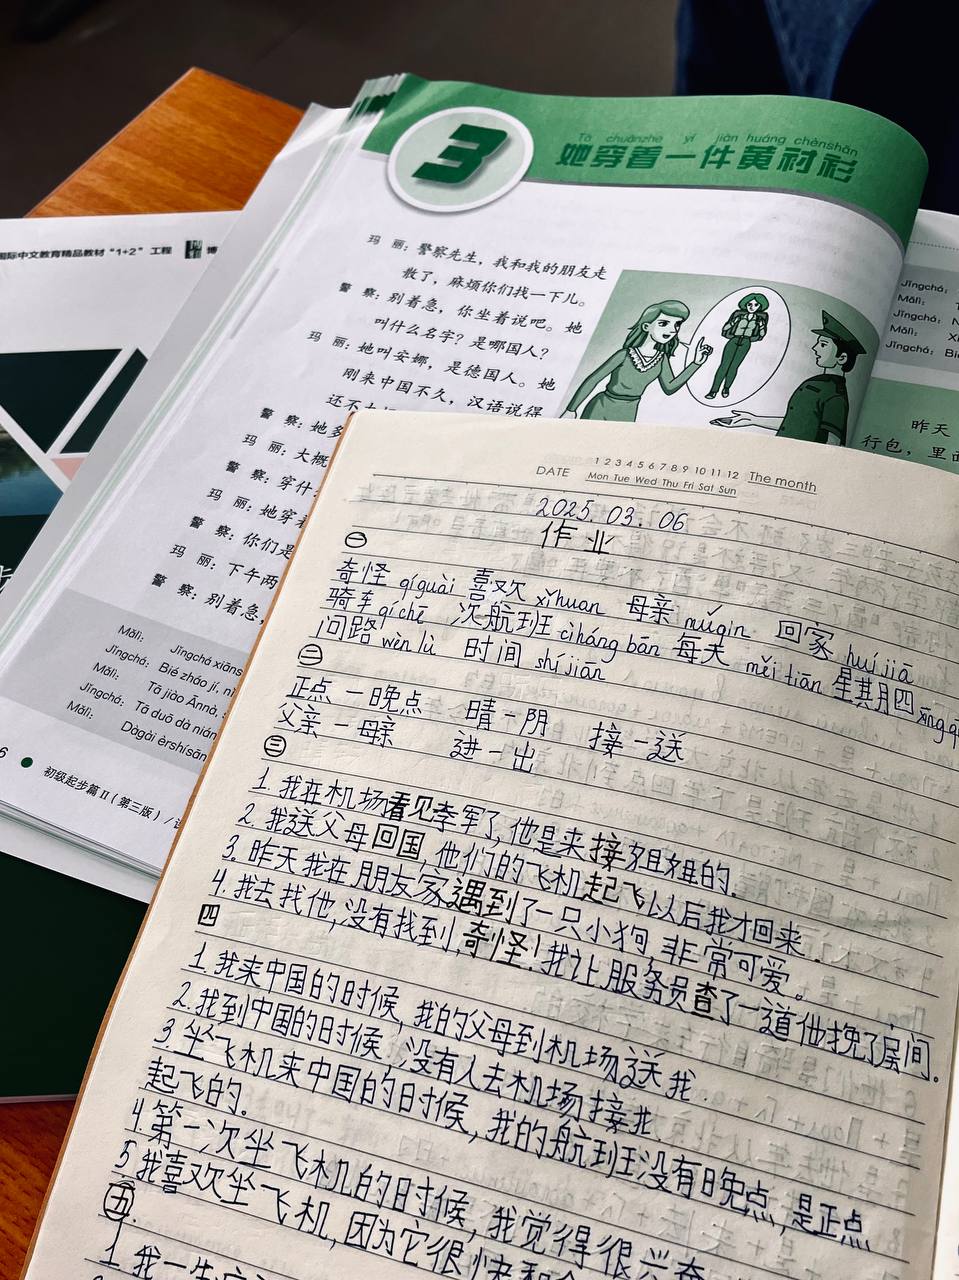 国际中文教育精品教材“1+2”工程
3
Tā chuānzhe yí jiàn huáng chènshān
她穿着一件黄衬衫
玛 丽：警察先生，我和我的朋友走
散了，麻烦你们找一下儿。
警 察：别着急，你坐着说吧。她
叫什么名字？是哪国人？
玛 丽：她叫安娜，是德国人。她
刚来中国不久，汉语说得
还不太
警 察：她多
玛 丽：大概
警 察：穿什
玛 丽：她穿着
警 察：你们是
玛 丽：下午两
警 察：别着急，
Mǎlì: Jǐngchá xiāns
Jǐngchá: Bié zháo jí, nǐ
Mǎlì: Tā jiào Ānnà,
Jǐngchá: Tā duō dà nián
Mǎlì: Dàgài èrshísān
6 初级起步篇 II（第三版）/
Jǐngchá:
Mǎlì:
Jǐngchá:
Mǎlì:
Jǐngchá: Bié
昨天
行包，里面
1 2 3 4 5 6 7 8 9 10 11 12 The month
DATE Mon Tue Wed Thu Fri Sat Sun
2025. 03. 06
作业
一
奇怪 qíguài 喜欢 xǐhuan 母亲 mǔqin 回家 huíjiā
骑车 qíchē 次航班 cìháng bān 每天 měi tiān 星期四 xīngq
问路 wèn lù 时间 shíjiān
二
正点 — 晚点 晴 — 阴 接 — 送
父亲 — 母亲 进 — 出
三
1. 我在机场看见李军了, 他是来接姐姐的.
2. 我送父母回国, 他们的飞机起飞以后我才回来.
3. 昨天我在朋友家遇到了一只小狗, 非常可爱。
4. 我去找他, 没有找到, 奇怪! 我让服务员查了一道他挽了房间.
四
1. 我来中国的时候, 我的父母到机场送我.
2. 我到中国的时候, 没有人去机场接我
3 坐飞机来中国的时候, 我的航班没有晚点, 是正点
起飞的.
4. 第一次坐飞机的时候, 我觉得很兴奋
5 我喜欢坐飞机, 因为它很快和
五.
1. 我一